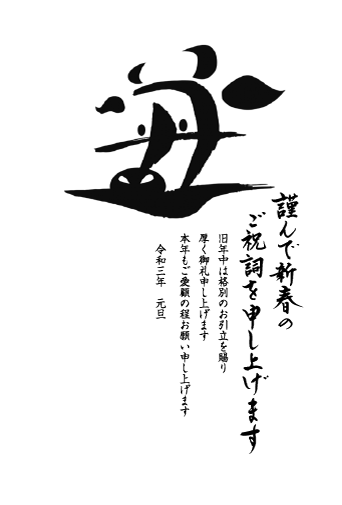 丑
謹んで新春の
ご祝詞を申し上げます
旧年中は格別のお引立を賜り
厚く御礼申し上げます
本年もご愛顧の程お願い申し上げます
令和三年　元旦